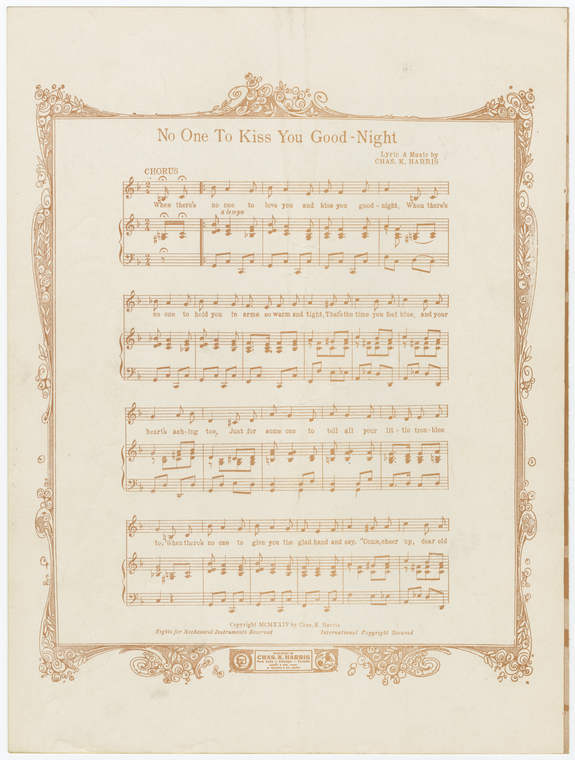 No One To Kiss You Good-Night
Lyric & Music by
CHAS. K. HARRIS
CHORUS
When there's no one to love you and kiss you good-night, When there's
a tempo
no one to hold you in arms so warm and tight, That's the time you feel blue, and your
heart's ach-ing too, Just for some one to tell all your lit-tle trou-bles
to, When there's no one to give you the glad hand and say, "Come, cheer up, dear old
Copyright MCMXXIV by Chas. K. Harris
Rights for Mechanical Instruments Reserved International Copyright Secured
PUBLISHED BY
CHAS. K. HARRIS
New York - Chicago - Toronto